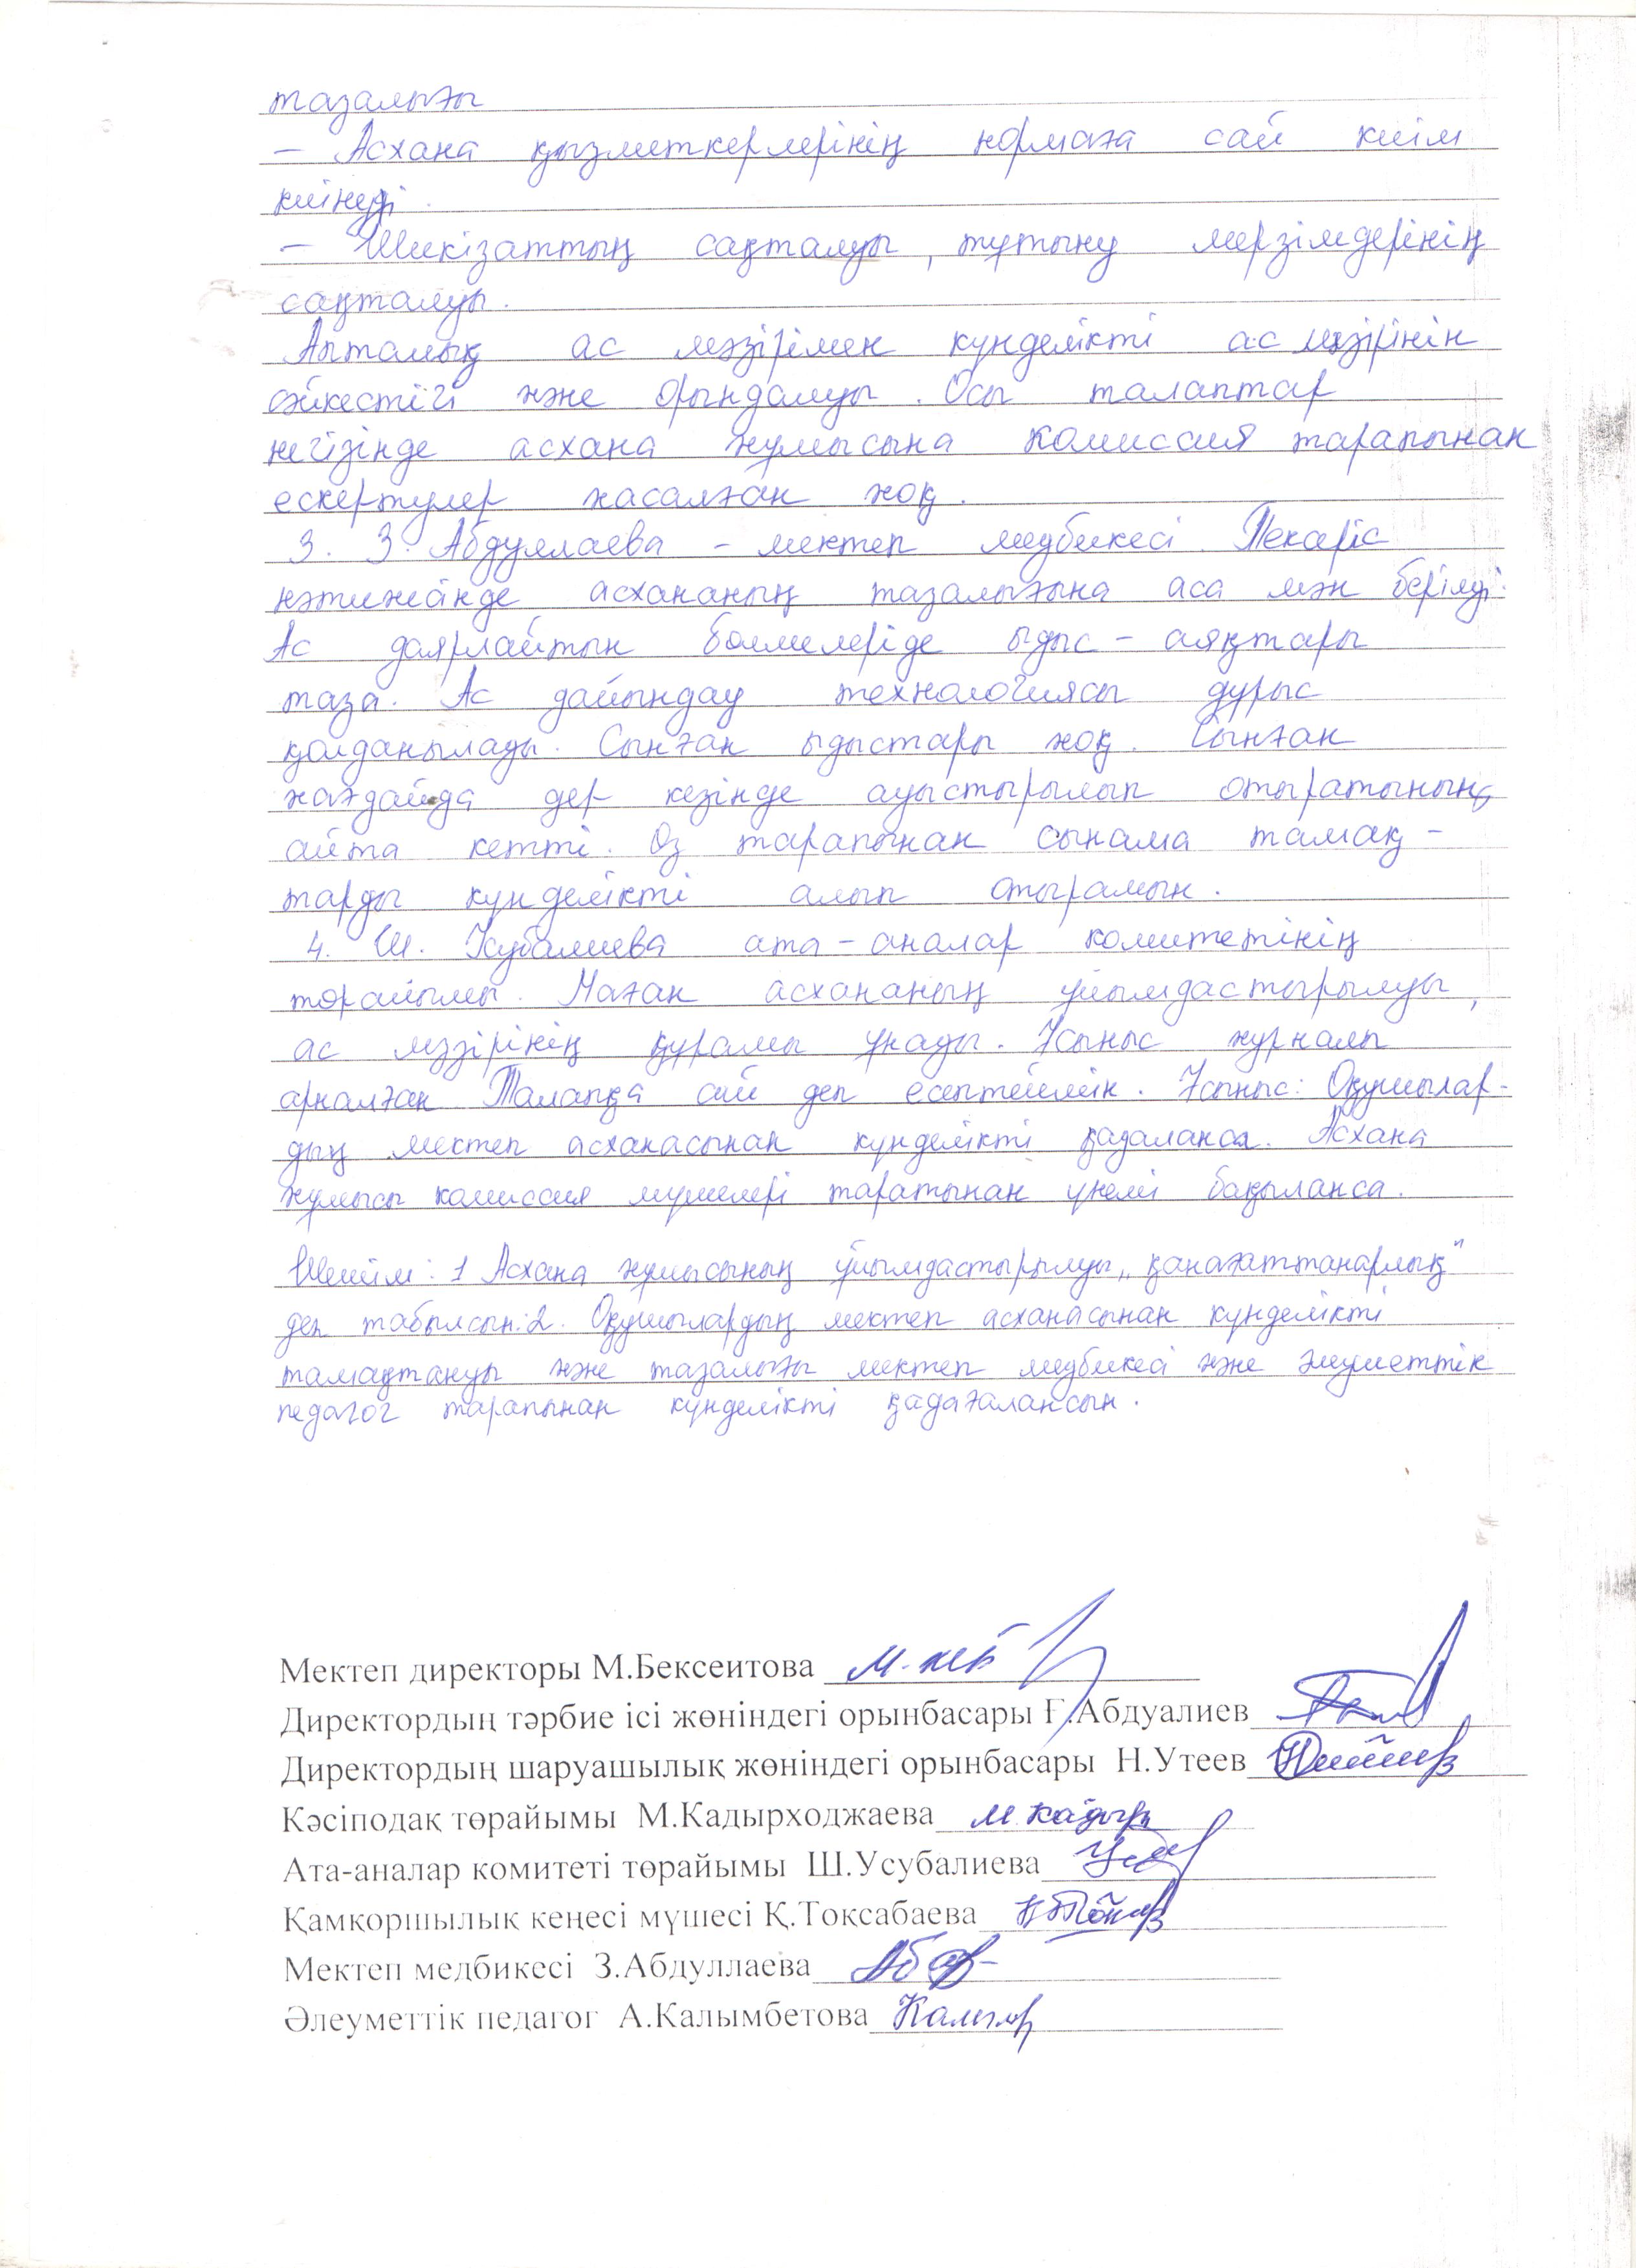 тазалығы
– Асхана қызметкерлерінің нормаға сай киім
киінуі.
– Шикізаттың сақталуы, тұтыну мерзімдерінің
сақталуы.
Апталық ас мәзірімен күнделікті ас мәзірінін
сәйкестігі және орындалуы. Осы талаптар
негізінде асхана жұмысына комиссия тарапынан
ескертулер жасалған жоқ.
3. З. Абдуллаева – мектеп медбикесі
нәтижесінде асхананың тазалығына аса мән берілді.
Ас даярлайтын бөлмелеріде ыдыс – аяқтары
таза. Ас дайындау технологиясы дұрыс
қолданылады. Сынған ыдыстары жоқ. Сынған
жағдайда дер кезінде ауыстырылып отыратынын
айта кетті. Өз тарапынан сынама тамақ –
тарды күнделікті алып отырамын.
4. Ш. Усубалиева ата – аналар комитетінің
төрайымы. Маған асхананың ұйымдастырылуы,
ас мәзірінің құрамы ұнады. Ұсыныс журналы
арналған Талапқа сай деп есептеймін. Ұсыныс: Оқушылар-
дың мектеп асханасынан күнделікті қадаланса. Асхана
жұмысы комиссия мүшелері таратынан үнемі бақыланса.
Шешім: 1 Асхана жұмысының ұйымдастырылуы „қанағаттанарлық"
деп табылсын. 2. Оқушылардың мектеп асханасынан күнделікті
тамақтануы және тазалығы мектеп медбикесі және әлеуметтік
педагог тарапынан күнделікті қадағалансын.
Мектеп директоры М.Бексеитова
Директордың тәрбие ісі жөніндегі орынбасары Ғ.Абдуалиев
Директордың шаруашылық жөніндегі орынбасары Н.Утеев
Кәсіподақ төрайымы М.Кадырходжаева
Ата-аналар комитеті төрайымы Ш.Усубалиева
Қамқоршылық кеңесі мүшесі Қ.Токсабаева
Мектеп медбикесі З.Абдуллаева
Әлеуметтік педагог А.Калымбетова